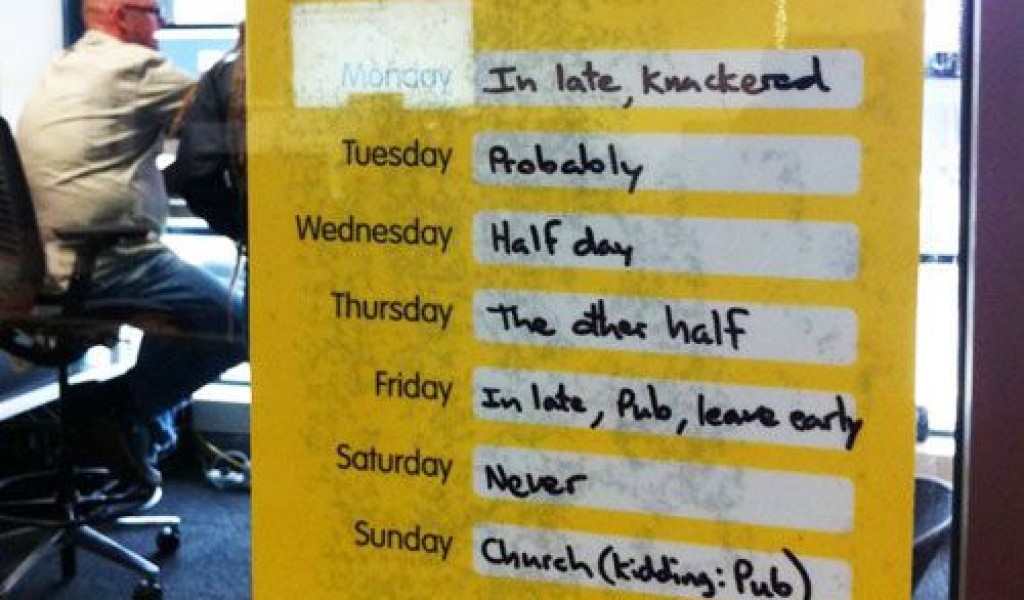 Monday In late, knackered
Tuesday Probably
Wednesday Half day
Thursday The other half
Friday In late, Pub, leave early
Saturday Never
Sunday Church (kidding: Pub)